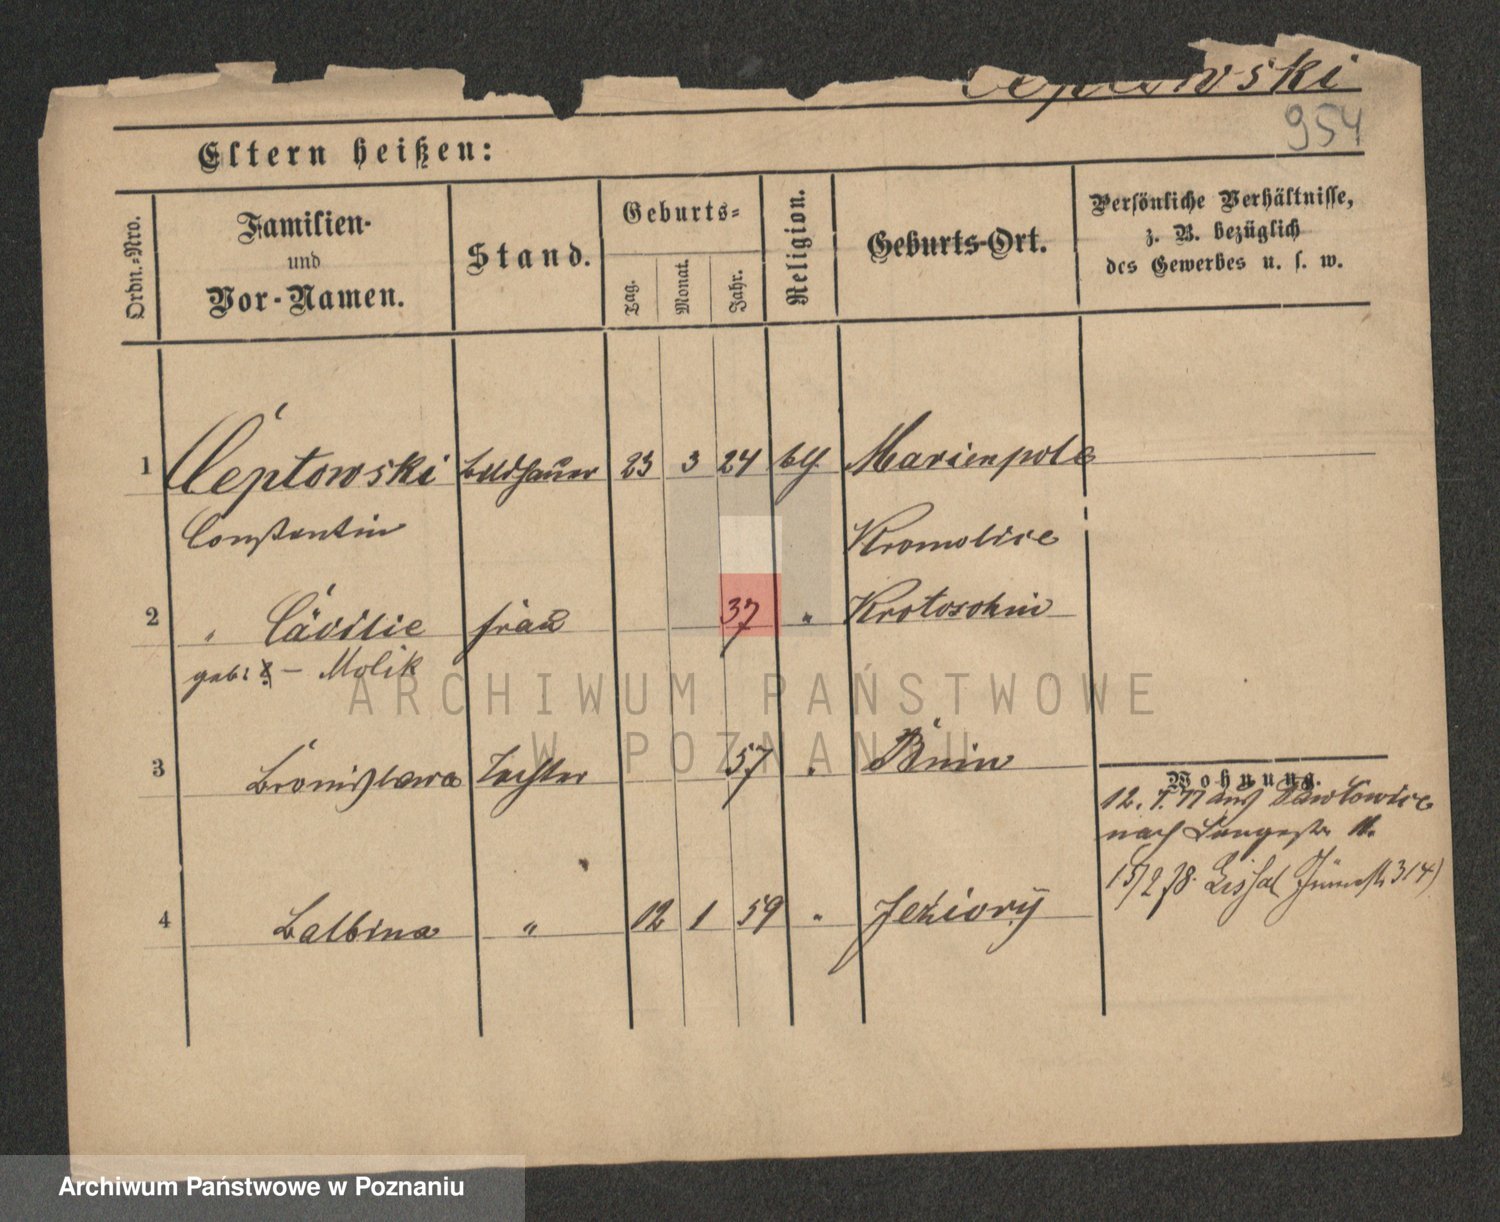 Ceptowski
954
Eltern heißen:
Ordn.-Nro.
Familien- und Vor-Namen.
Stand.
Geburts-
Tag.
Monat.
Jahr.
Religion.
Geburts-Ort.
Persönliche Verhältnisse,
z. B. bezüglich
des Gewerbes u. s. w.
1 Ceptowski Bildhauer 23 3 24 Marienpole
Constantin Kromolice
2 " Cäcilie Frau 37 " Krotoschin
geb: - Molik
3 Bronislawa Tochter 57 " Bnin
Wohnung.
12. 77 aus Pawlowice
nach Langestr. 11.
15/2 78. 314)
4 Balbina " 12 1 59 " Jeziory
ARCHIWUM PAŃSTWOWE
W POZNANIU
Archiwum Państwowe w Poznaniu